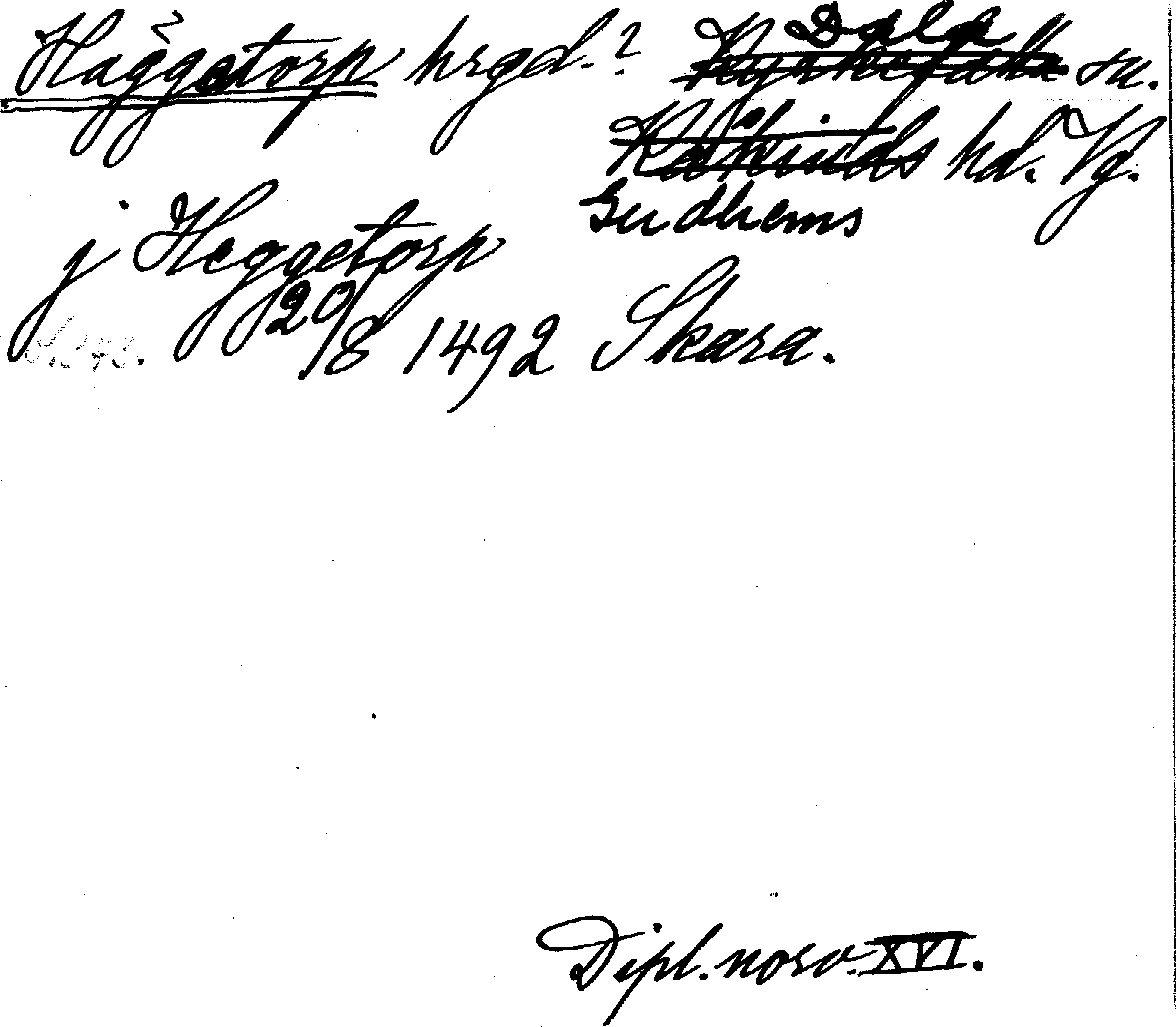 Häggetorp hrgd.? Dala sn.
Kåkinds hd. Vg.
Gudhems
j Heggetorp
20/8 1492 Skara.
Dipl. norv. XVI.